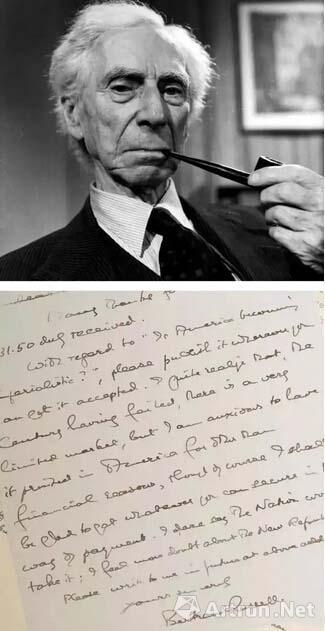 Many thanks for
$31.50 duly received.
With regard to "Is America becoming
Imperialistic?", please publish it wherever you
can get it accepted. I quite realize that, the
Century having failed, there is a very
limited market, but I am anxious to have
it printed in America for other than
financial reasons, though of course I shall
be glad to get whatever you can secure in the
way of payment. I dare say The Nation would
take it; I feel more doubt about the New Republic
Please write to me in future at above address
Yours sincerely
Bertrand Russell.
Artron.Net